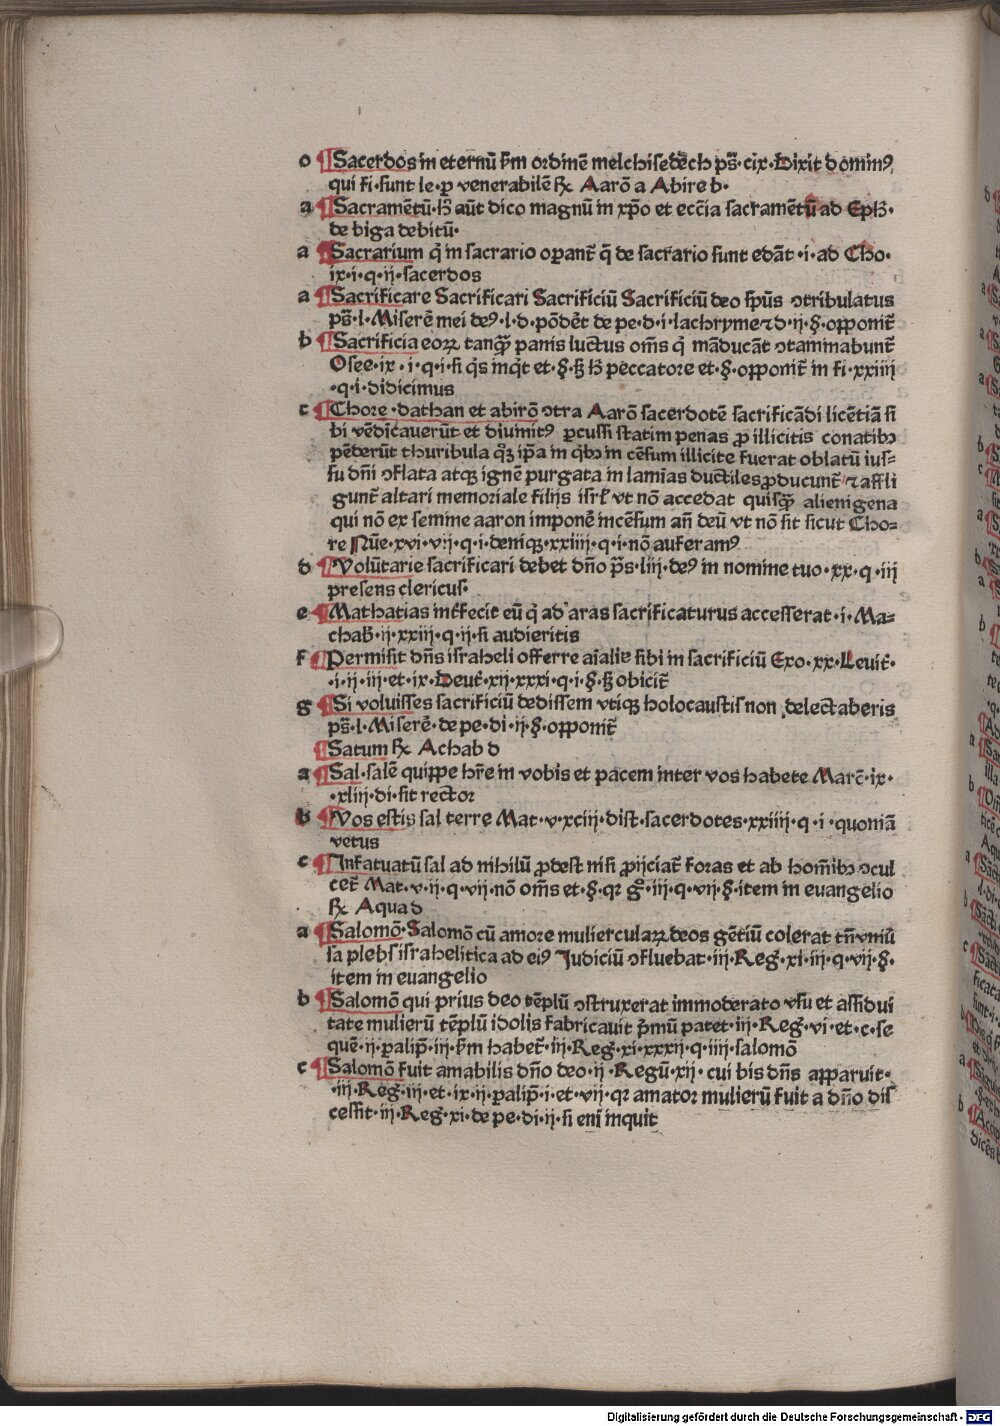 o ¶Sacerdos in eternū ẜm ordinē melchisedech ps̄·cix·Dixit dominꝰ
qui fi·sunt le·ꝑ venerabilē ℞ Aarō a Abire b·
a ¶Sacramētū·hͥ aūt dico magnū in xp̄o et ecc̄ia sacramētū ad Eph̄·
de biga debitū·
a ¶Sacrarium q̄ in sacrario oꝑant᷑ q̄ de sacrario sunt edāt ·i·ad Cho·
ix·i·q·ij·sacerdos
a ¶Sacrificare Sacrificari Sacrificiū Sacrificiū deo sp̄us ↄtribulatus
ps̄·l·Miserē mei deꝰ·l·d·pōdēt de pe·d·i·lachryme⁊d·ij·§·opponit᷑
b ¶Sacrificia eoꝝ tanqꝫ̄ panis luctus om̄s q̇ māducāt ↄtaminabunt᷑
Osee·ix·i·q·i·si q̇s inq̇t et·§·ꝫ hͥ peccatore et·§·opponit᷑ in fi·xxiiij
·q·i·didicimus
c ¶Chore·dathan et abirō ↄtra Aarō sacerdotē sacrificādi licētiā si
bi vēdicauerūt et diuinitꝰ ꝑcussi statim penas ꝓ illicitis conatibꝫ
pēderūt thuribula qͦꝫ ip̄a in qͥbꝫ in cēsum illicite fuerat oblatū ius⸗
su dn̄i ↄflata atqꝫ ignē purgata in lamīas ductiles ꝓducunt᷑ ⁊ affli
gunt᷑ altari memoriale filijs isrl̓ vt nō accedat quisqꝫ̄ alienigena
qui nō ex semine aaron imponē incēsum an̄ deū vt nō sit sicut Cho⸗
re Nūe·xvi·vij·q·i·deniqꝫ·xxiiij·q·i·nō auferamꝰ
d ¶Volūtarie sacrificari debet dn̄o ps̄·liij·deꝰ in nomine tuo·xx·q·iij
presens clericus·
e ¶Mathatias int᷑fecit eū q̇ ad aras sacrificaturus accesserat·i·Ma⸗
chab̄·ij·xxiij·q·ij·si audieritis
f ¶Permisit dn̄s israheli offerre aīalia sibi in sacrificiū Exo·xx·Leuit᷑·
·i·ij·iij·et·ix·Deut᷑·xij·xxxi·q·i·§·ꝫ obicit᷑
g ¶Si voluisses sacrificiū dedissem vtiqꝫ holocaustis non delectaberis
ps̄·l·Miserē·de pe·di·ij·§·opponit᷑
¶Satum ℞ Achab d
a ¶Sal·salē quippe hr̄e in vobis et pacem inter vos habete Marc̄·ix·
·xliij·di·sit rector
b ¶Vos estis sal terre Mat·v·xciij·dist·sacerdotes·xxiiij·q·i·quoniā
vetus
c ¶Infatuatū sal ad nihilū ꝓdest nisi ꝓijciat᷑ foras et ab hom̄ibꝫ ↄcul
cet᷑ Mat·v·ij·q·vij·nō om̄s et·§·qꝛ gͦ·iij·q·vij·§·item in euangelio
℞ Aqua d
a ¶Salomō·Salomō cū amore muliercularꝝ deos gētiū colerat tn̄ vniū
sa plebs israhelitica ad eiꝰ Judiciū ↄfluebat·iij·Reg·xi·iij·q·vij·§·
item in euangelio
b ¶Salomō qui prius deo tēplū ↄstruxerat immoderato vsu et assidui
tate mulierū tēplū idolis fabricauit pͥmū patet·iij·Reg·vi·et·c·se
quē·ij·ꝑalip̄·iij·ẜm habet᷑·iij·Reg·xi·xxxij·q·iiij·salomō
c ¶Salomō fuit amabilis dn̄o deo·ij·Regū·xij·cui bis dn̄s apparuit·
·iij·Reg·iij·et·ix·ij·ꝑalip̄·i·et·vij·qꝛ amator mulierū fuit a dn̄o dis
cessit·iij·Reg·xi·de pe·di·ij·si eni inquit
Digitalisierung gefördert durch die Deutsche Forschungsgemeinschaft - DFG